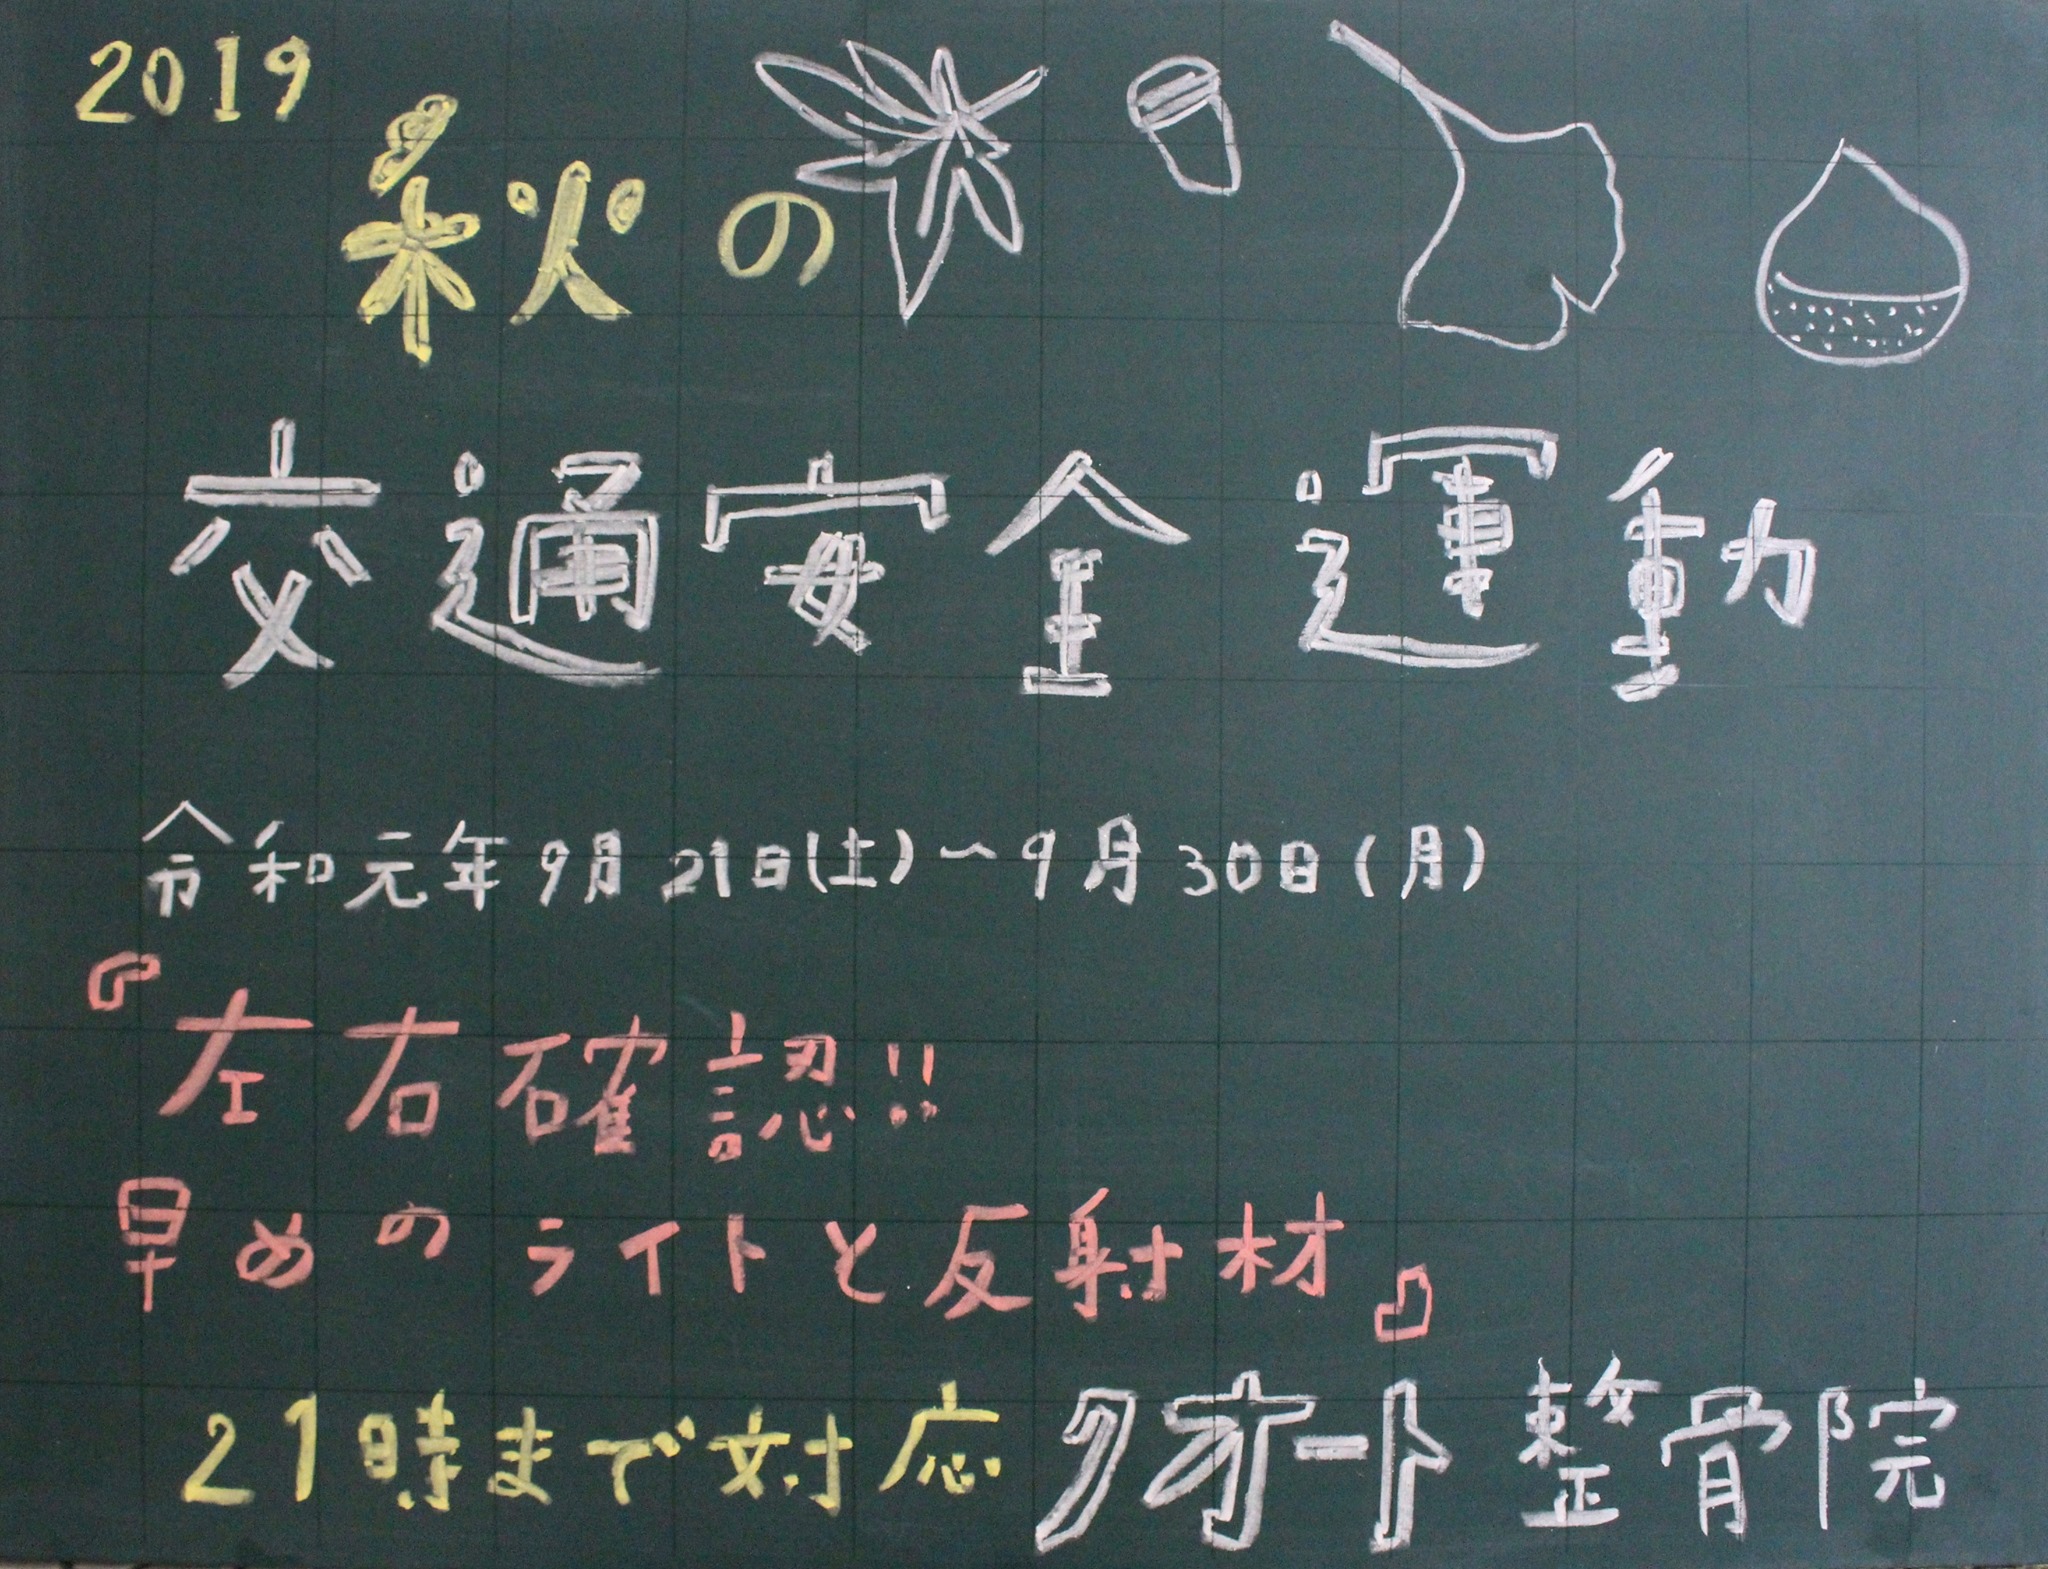 2019
秋の
交通安全運動
令和元年9月21日(土)~9月30日(月)
『左右確認!!
早めのライトと反射材』
21時まで対応 クオート整骨院